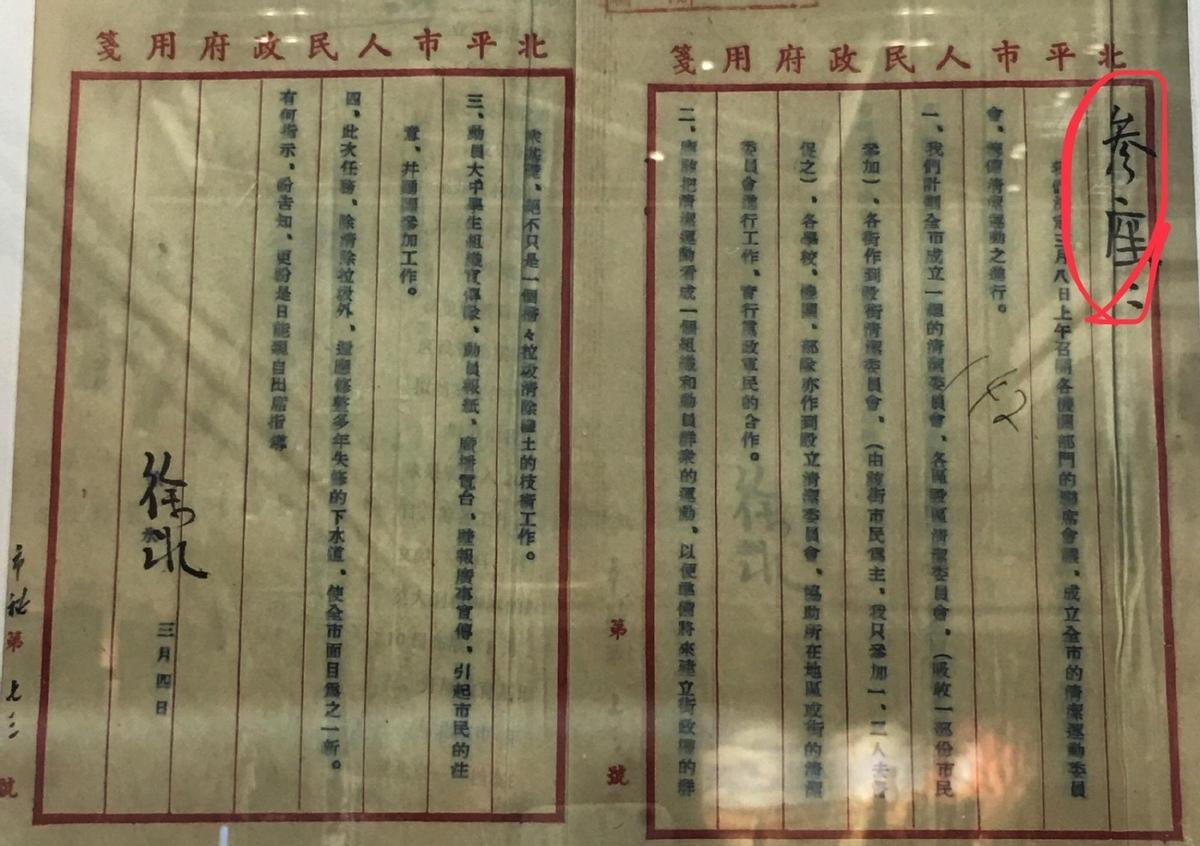 北平市人民政府用箋
参座：
我們決定三月八日上午召開各機關部門的聯席會議、成立全市的清潔運動委員
會、準備清潔運動之進行。
一、我們計劃全市成立一總的清潔委員會、各區設區清潔委員會、（吸收一部份市民
參加）、各街作到設街清潔委員會、（由該街市民爲主、我只參加一、二人去
保之）、各學校、機關、部隊亦作到設立清潔委員會、協助所在地區或街的清潔
委員會進行工作、實行黨政軍民的合作。
二、應該把清潔運動看成一個組織和動員群衆的運動、以便準備將來建立街政權的群
第 號
北平市人民政府用箋
衆基礎、絕不只是一個掃々垃圾清除糞土的技術工作。
三、動員大中學生組織宣傳隊、動員報紙、廣播電台、壁報廣事宣傳、引起市民的注
意、并踴躍參加工作。
四、此次任務、除清除垃圾外、還應修整多年失修的下水道、使全市面目爲之一新。
有何指示、盼告知、更盼是日能親自出席指導
徐冰
三月四日
市秘第七三號